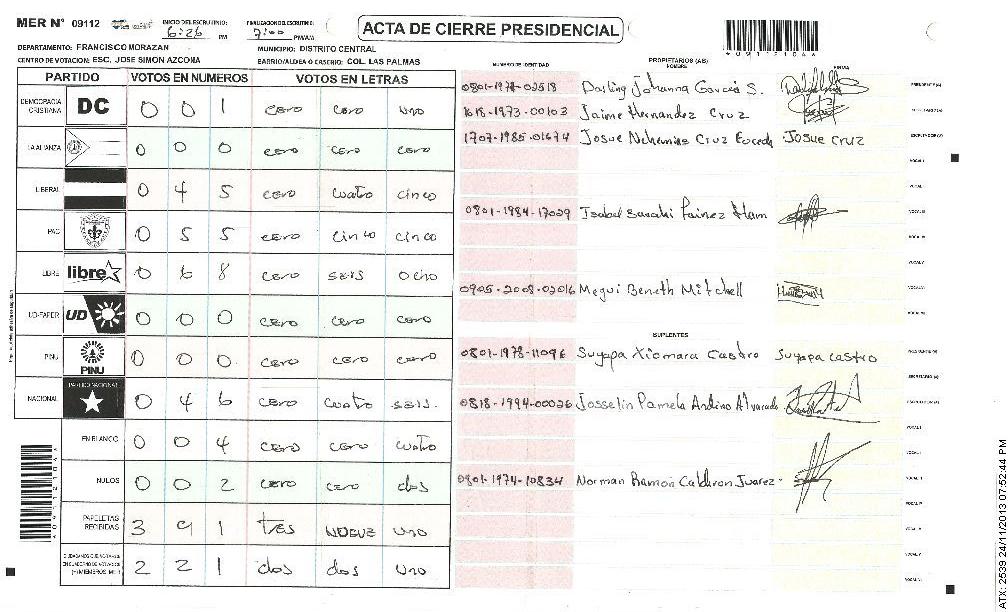 MER N° 09112
INICIO DEL ESCRUTINIO: 6:26 PM
FINALIZACION DEL ESCRUTINIO: 7:00 PM/A/A
ACTA DE CIERRE PRESIDENCIAL
DEPARTAMENTO: FRANCISCO MORAZAN
MUNICIPIO: DISTRITO CENTRAL
CENTRO DE VOTACION: ESC. JOSE SIMON AZCONA
BARRIO/ALDEA O CASERIO: COL. LAS PALMAS
PARTIDO VOTOS EN NUMEROS VOTOS EN LETRAS
DEMOCRACIA CRISTIANA DC 0 0 1 cero cero uno
LA ALIANZA 0 0 0 cero cero cero
LIBERAL 0 4 5 cero cuatro cinco
PAC 0 5 5 cero cinco cinco
LIBRE libre 0 6 8 cero seis ocho
UD-FAPER UD 0 0 0 cero cero cero
PINU PINU 0 0 0 cero cero cero
NACIONAL PARTIDO NACIONAL 0 4 6 cero cuatro seis
EN BLANCO 0 0 4 cero cero cuatro
NULOS 0 0 2 cero cero dos
PAPELETAS RECIBIDAS 3 9 1 tres NUEVE uno
2 2 1 dos dos uno
NUMERO DE IDENTIDAD PROPIETARIOS (AS) NOMBRE FIRMA
0801-1978-02518 Darling Johanna Garcia S. PRESIDENTE (A)
1618-1973-00103 Jaime Hernandez Cruz SECRETARIO (A)
1707-1985-01674 Josue Nehemias Cruz Josue cruz ESCRUTADOR (A)
VOCAL I
0801-1984-17029 Isabel
0905-2008-02016 Megui Beneth Mitchell
SUPLENTES
0801-1978-11096 Suyapa Xiomara Castro Suyapa castro PRESIDENTE (A)
SECRETARIO (A)
0818-1994-00026 Josselin Pamela Andino Alvarado ESCRUTADOR (A)
VOCAL I
0801-1974-10834 Norman Ramon Calderon Juarez
ATX: 2539 24/11/2013 07:52:44 PM